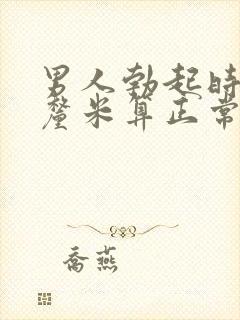 男人勃起时
厘米算正常
乔燕